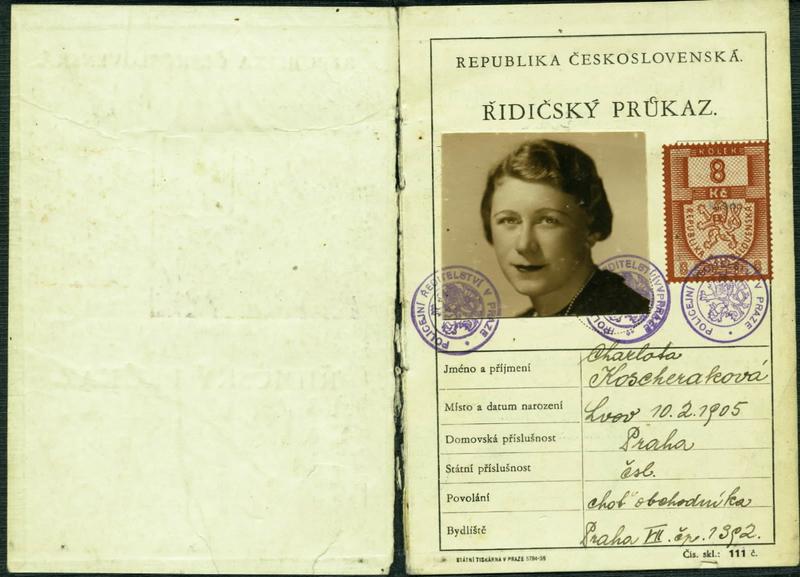 REPUBLIKA ČESKOSLOVENSKÁ.
ŘIDIČSKÝ PRŮKAZ.
KOLEK
8
Kč
REPUBLIKA ČESKOSLOVENSKÁ
8 8
POLICEJNÍ ŘEDITELSTVÍ V PRAZE
ŘEDITELSTVÍ V PRAZE
POLICEJNÍ ŘEDITELSTVÍ V PRAZE
Jméno a příjmení Charlota
Koscheraková
Místo a datum narození Lvov 10.2.1905
Domovská příslušnost Praha
Státní příslušnost čsl.
Povolání choť obchodníka
Bydliště Praha VII. čp. 1392.
STÁTNÍ TISKÁRNA V PRAZE 5784-36
Čís. skl.: 111 č.